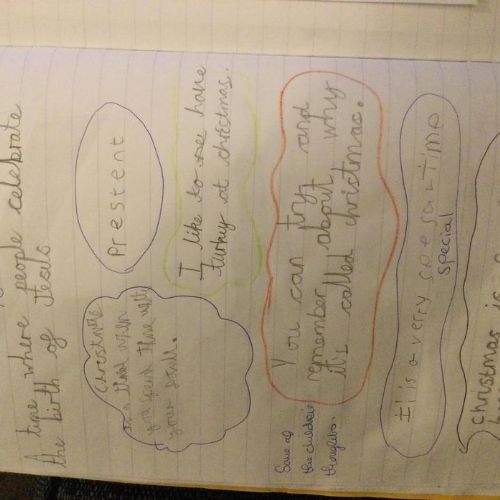 A time where people celebrate
the birth of Jesus
Prestent
Christmas
is a time when
you spend time with
your
I like to have
turkey at christmas.
You can try and
remember about why
it's called christmas.
Some of
the children's
thoughts.
It is a very time
special
christmas is a